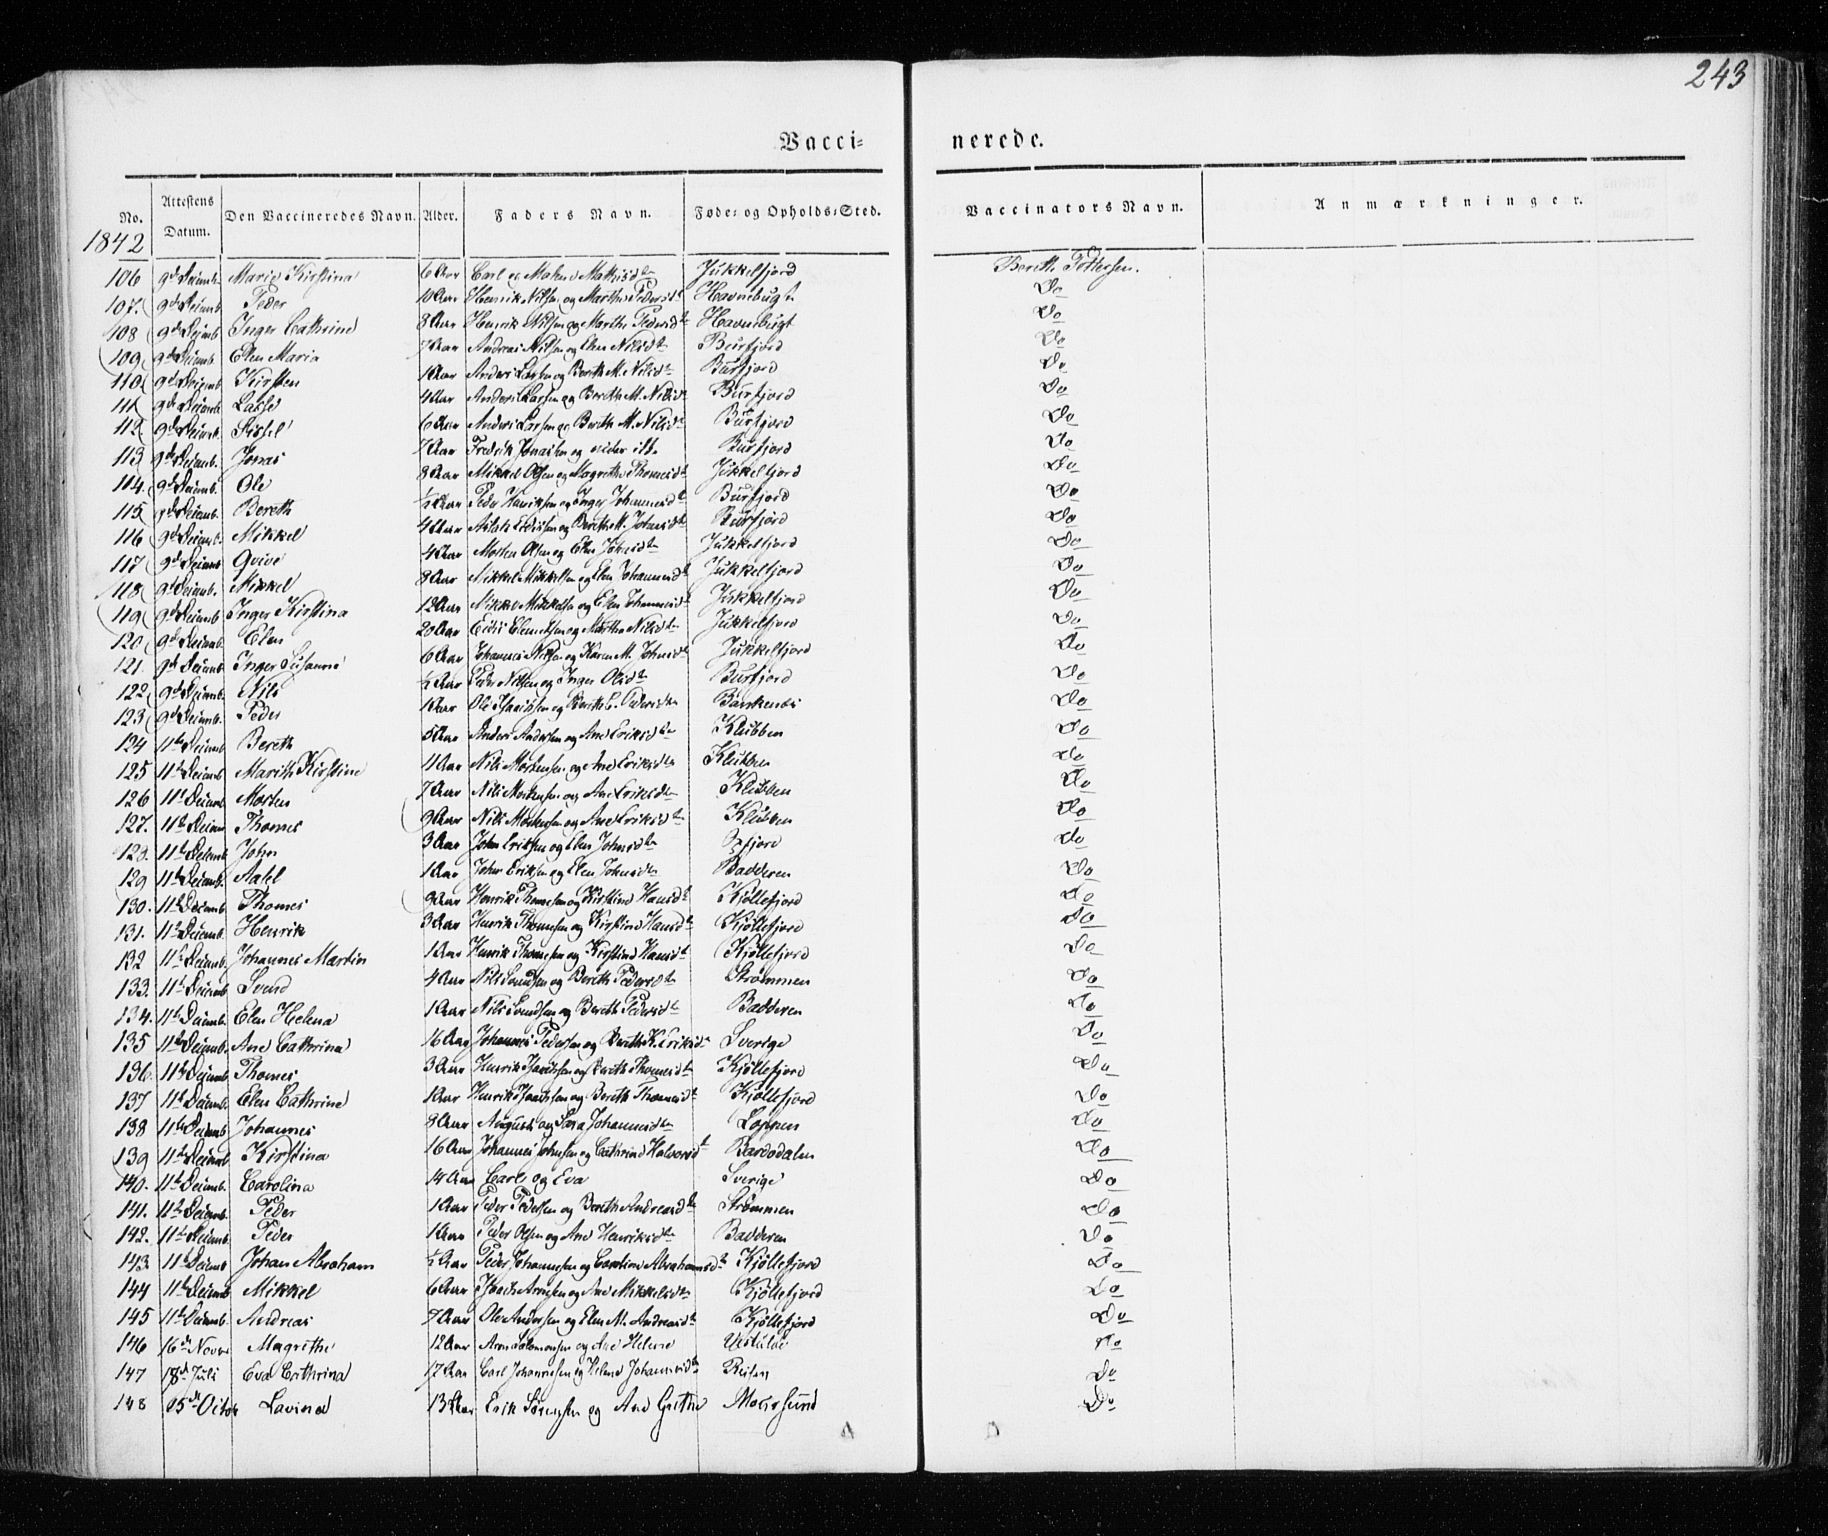 243
Vacci= nerede.
No. Attestens Datum. Den Vaccineredes Navn. Alder. Faders Navn. Føde= og Opholds=Sted. Vaccinators Navn. Anmærkninger.
1842
106 9de Decemb. Marie Kirstina 6 Aar Carl og Malene Mathisdtr Jukkelfjord Berith Pettersen.
107. 9de Decemb Peder 10 Aar Henrik Nilsen og Marthe Pedersdt Havnebugt Do
108 9de Decemb Inger Cathrine 8 Aar Henrik Nilsen og Marthe Pedersdt Havnebugt Do
109 9de Decemb. Elen Maria 7 Aar Andreas Nilsen og Elen Nilsdtr Burfjord Do
110. 9de Decemb. Kirsten 1 Aar Anders Larsen og Bereth M. Nilsdtr Burfjord Do
111 9de Decemb. Lasse 4 Aar Anders Larsen og Bereth M. Nilsdtr Burfjord Do
112. 9de Decemb. Sissel 6 Aar Anders Larsen og Bereth M. Nilsdtr Burfjord Do
113 9de Decemb. Jonas 7 Aar Fredrik Jonassen og Burfjord Do
114. 9de Decemb. Ole 8 Aar Mikkel Olsen og Magrethe Thomesdt Jukkelfjord Do
115 9de Decemb. Bereth ½ Aar Peder Henriksen og Inger Johannesdt Burfjord Do
116 9de Decemb. Mikkel 4 Aar Bereth M. Johnsdtr Burfjord Do
117 9de Decemb Qvive 4 Aar Morten Olsen og Elen Johnsdtr Jukkelfjord Do
118 9de Decemb. Mikkel 8 Aar Mikkel Mikkelsen og Elen Johannesdt Jukkelfjord Do
119 9de Decemb Inger Kirstina 12 Aar Mikkel Mikkelsen og Elen Johannesdt Jukkelfjord Do
120 9de Decemb. Elen 20 Aar Clemetsen og Marthe Nilsdtr Jukkelfjord Do
121. 9de Decemb. Inger Susanne 6 Aar Johannes Nilsen og Karen M. Johnsdt Jukkelfjord Do
122 9de Decemb. Nils ½ Aar Peder Nilsen og Inger Olsdtr Burfjord Do
123 9de Decemb. Peder 1 Aar Ole Isachsen og Bereth E. Pedersdtr Do
124 11te Decemb Bereth 5 Aar Anders Andersen og Ane Eriksdtr Klubben Do
125 11te Decemb Marith Kirstine 11 Aar Nils Mortensen og Ane Eriksdtr Klubben Do
126 11te Decemb Morten 7 Aar Nils Mortensen og Ane Eriksdtr Klubben Do
127. 11te Decemb Thomes 9 Aar Nils Mortensen og Ane Eriksdtr Klubben Do
128. 11te Decemb John 3 Aar John Eriksen og Elen Johnsdtr Do
129 11te Decemb. Aslel 1 Aar John Eriksen og Elen Johnsdtr Badderen Do
130. 11te Decemb Thomes 9 Aar Henrik Thomesen og Kirstine Hansdt Kjøllefjord Do
131. 11te Decemb. Henrik 3 Aar Henrik Thomesen og Kirstine Hansdt Kjøllefjord Do
132 11te Decemb. Johannes Martin 1 Aar Henrik Thomesen og Kirstine Hansdt Kjøllefjord Do
133. 11te Decemb Svend 4 Aar Nils Svendsen og Bereth Pedersdtr Strømmen Do
134. 11te Decemb. Elen Helena 1 Aar Nils Svendsen og Bereth Pedersdtr Badderen Do
135 11te Decemb. Ane Cathrina 16 Aar Johannes Pedersen og Bereth K. Eriksdtr Sverige Do
136. 11te Decemb. Thomes 3 Aar Henrik Isachsen og Bereth Thomesdtr Kjøllefjord Do
137 11te Decemb. Elen Cathrine 1 Aar Henrik Isachsen og Bereth Thomesdt Kjøllefjord Do
138 11te Decemb Johannes 8 Aar August og Sara Johannesdtr Loppen Do
139 11te Decemb Kirstina 16 Aar Johannes Johnsen og Cathrine Halvorsdt Bardodalen Do
140. 11te Decemb. Carolina 14 Aar Carl og Eva Sverige Do
141. 11te Decemb. Peder 1 Aar Peder Pedersen og Bereth Andreasdtr Strømmen Do
142. 11te Decemb. Peder 1 Aar Peder Olsen og Ane Henriksdtr Badderen Do
143 11te Decemb Johan Abraham ½ Aar Peder Johannesen og Caroline Abrahamsdt Kjøllefjord Do
144 11te Decemb Mikkel 6 Aar Isach Arnesen og Ane Mikkelsdtr Kjøllefjord Do
145 11te Decemb Andreas 7 Aar Ole Andersen og Elen M. Andreasdt Kjøllefjord Do
146 16de Novbr Magrethe 12 Aar Arn Salomonsen og Ane Helene Do
147 18de Juli Eva Cathrina 17 Aar Carl Johannesen og Helene Johannesdtr Reisen Do
148 25de Octob Lavina 13 Aar Erik Sørensen og Ane Grethe Maursund Do